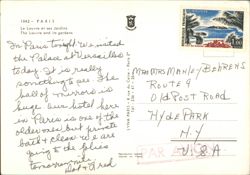 1042 - PARIS
Le Louvre et ses Jardins
The Louvre and its gardens
In Paris tonight. We visited
the Palace at Versailles
today. It is really
something to see. The
hall of mirrors is
huge. Our hotel here
in Paris is one of the
older ones but private
bath & clean. We are
going to the
tomorrow nite.
Dot & Fred
Mr & Mrs Manley Behrens
Route 9
Old Post Road
Hyde Park
N.Y
U.S.A
PAR AVION